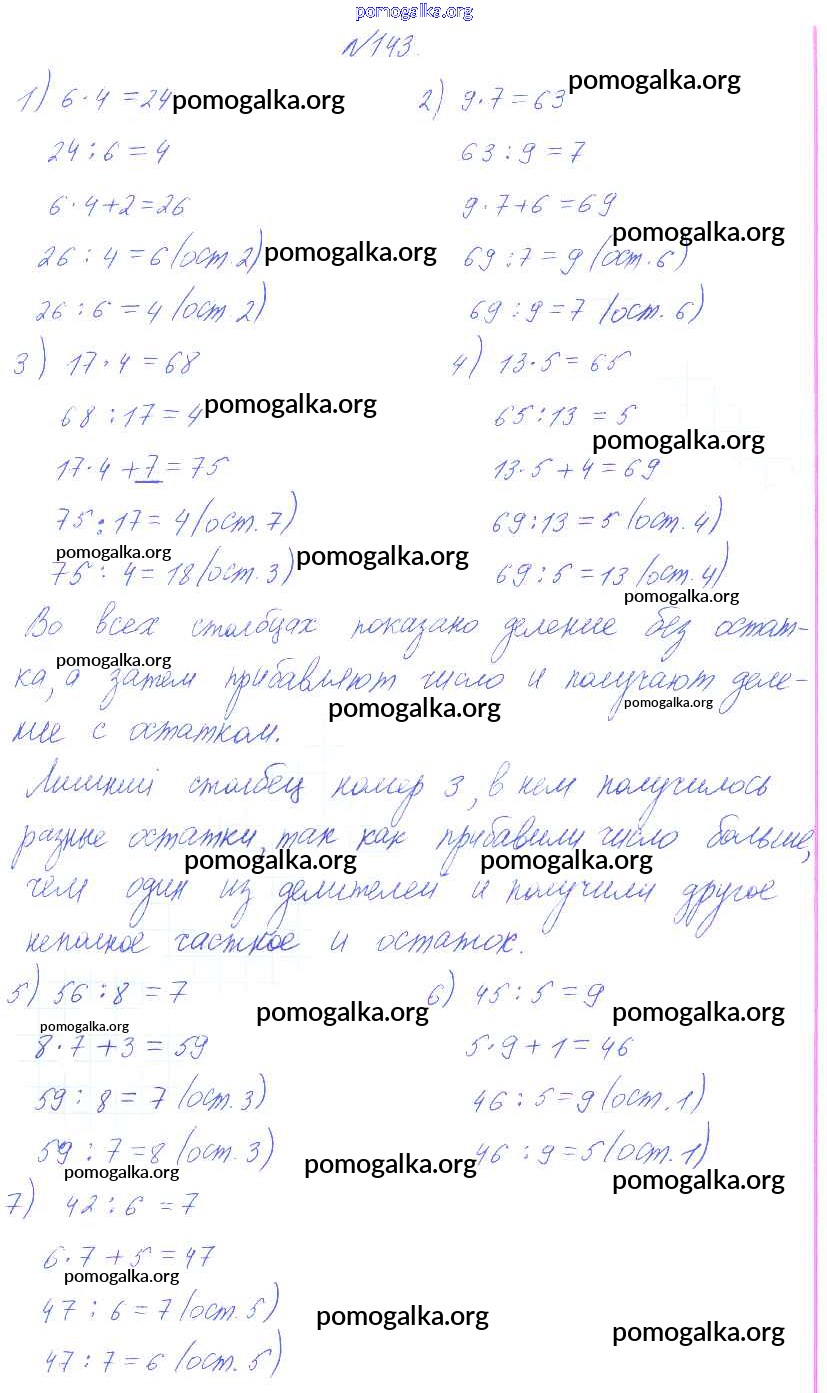 pomogalka.org
№143.
1) 6·4=24 pomogalka.org 2) 9·7=63 pomogalka.org
24:6=4 63:9=7
6·4+2=26 9·7+6=69
pomogalka.org
26:4=6(ост.2) pomogalka.org 69:7=9(ост.6)
26:6=4(ост.2) 69:9=7(ост.6)
3) 17·4=68 4) 13·5=65
68:17=4 pomogalka.org 65:13=5
pomogalka.org
17·4+7=75 13·5+4=69
75:17=4(ост.7) 69:13=5(ост.4)
pomogalka.org pomogalka.org
75:4=18(ост.3) 69:5=13(ост.4)
pomogalka.org
Во всех столбцах показано деление без остат-
pomogalka.org
ка, а затем прибавляют число и получают деле-
pomogalka.org pomogalka.org
ние с остатком.
Лишний столбец номер 3, в нем получилось
разные остатки, так как прибавили число больше,
pomogalka.org pomogalka.org
чем один из делителей и получили другое
неполное частное и остаток.
5) 56:8=7 6) 45:5=9
pomogalka.org pomogalka.org
pomogalka.org
8·7+3=59 5·9+1=46
59:8=7(ост.3) 46:5=9(ост.1)
59:7=8(ост.3) 46:9=5(ост.1)
pomogalka.org pomogalka.org pomogalka.org
7) 42:6=7
6·7+5=47
pomogalka.org
47:6=7(ост.5) pomogalka.org
pomogalka.org
47:7=6(ост.5)